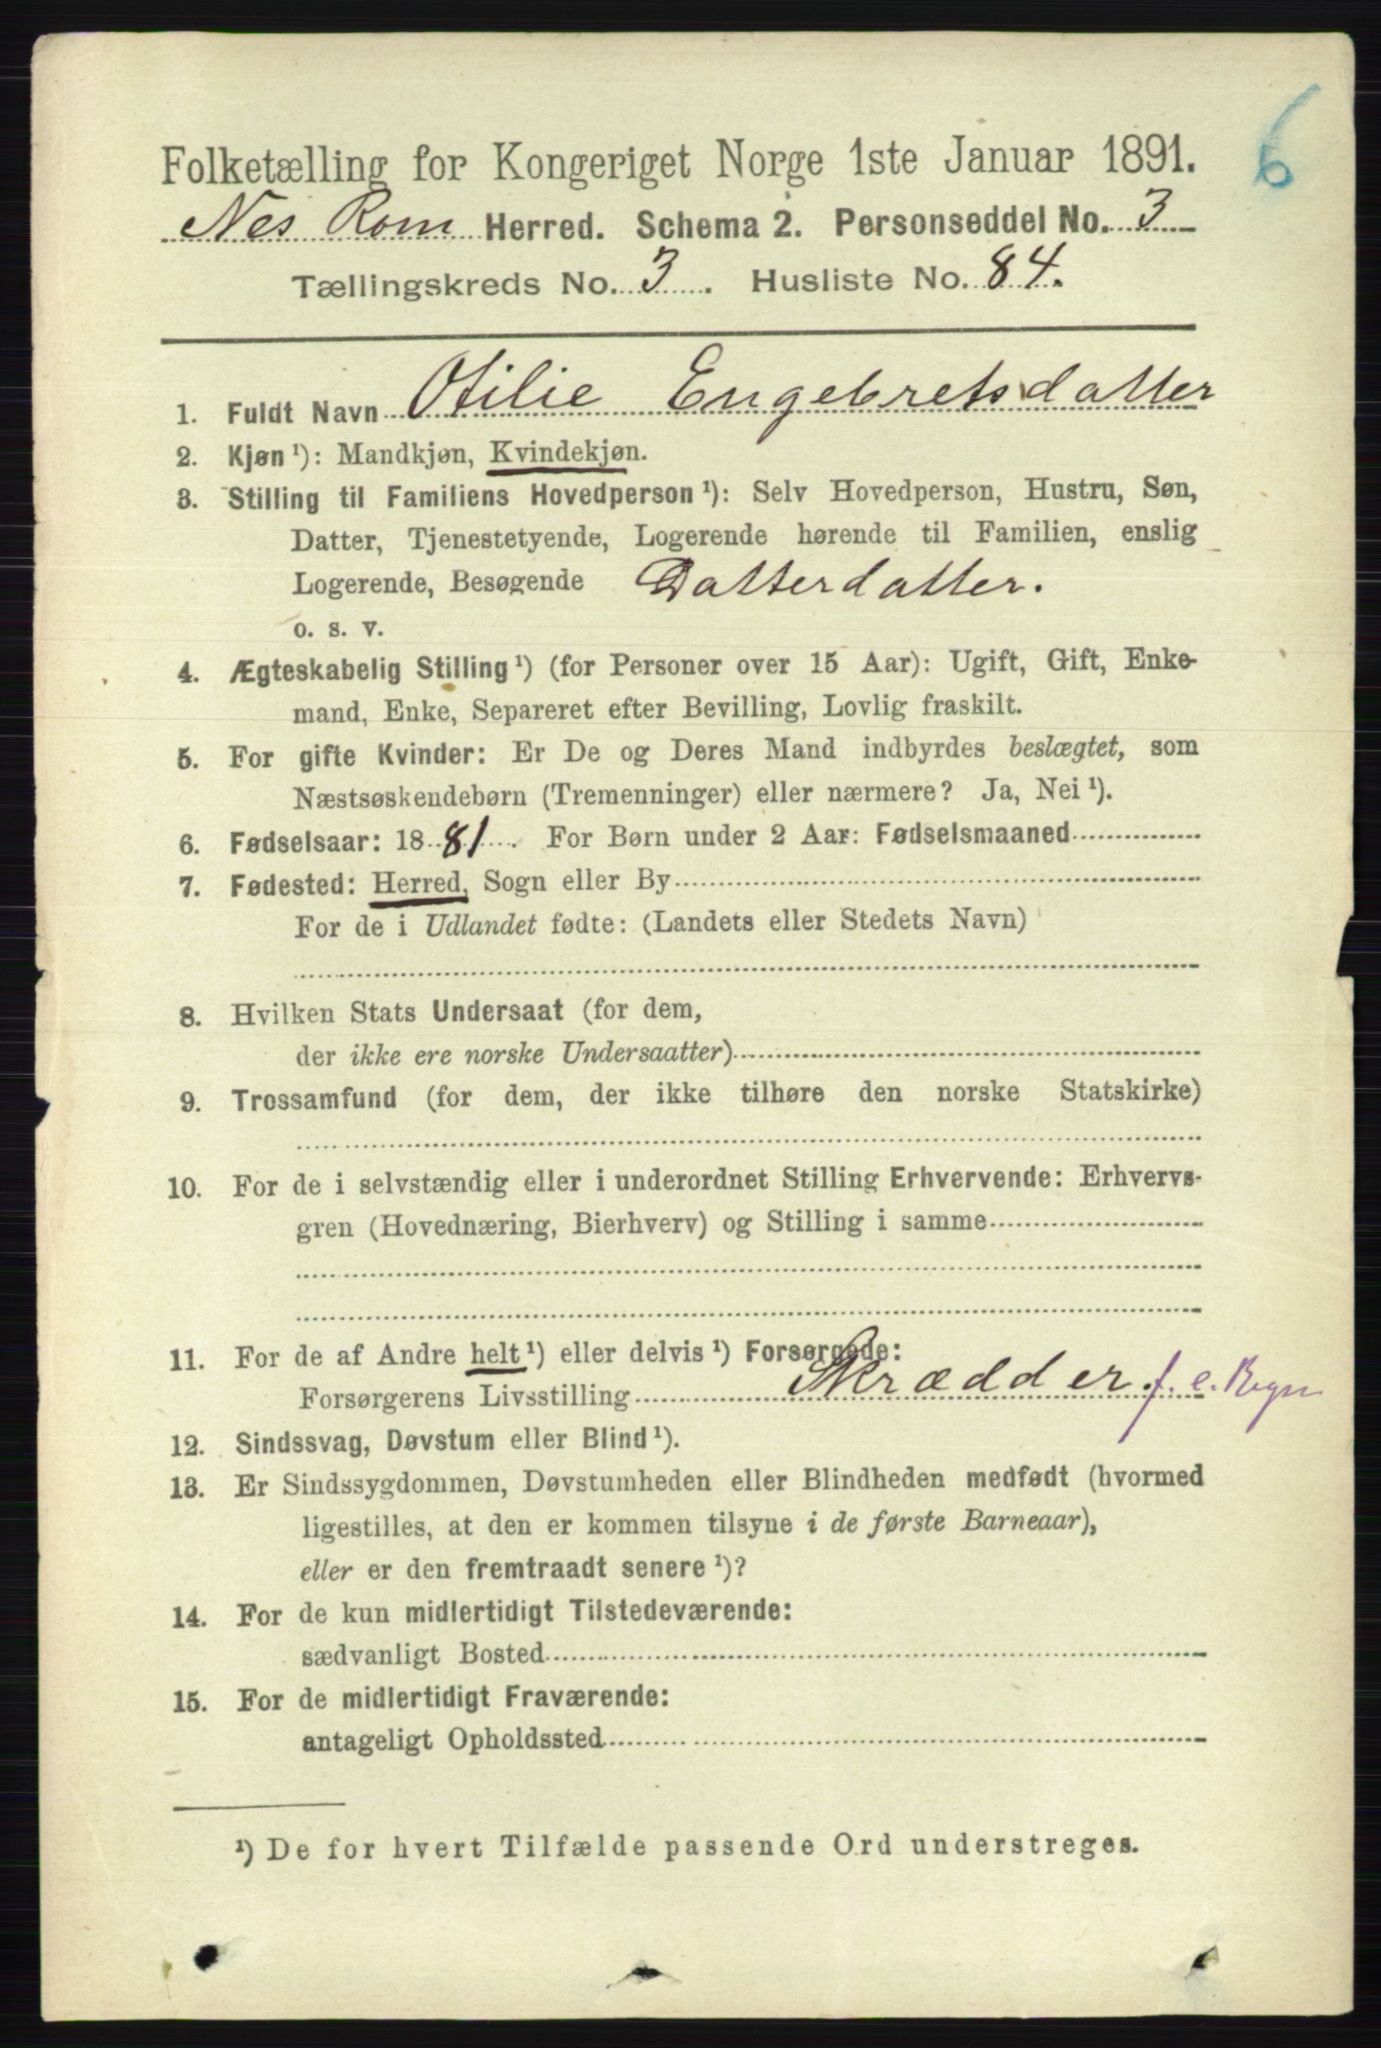 6
Folketælling for Kongeriget Norge 1ste Januar 1891.
Nes Rom Herred. Schema 2. Personseddel No. 3
Tællingskreds No. 3. Husliste No. 84.
1. Fuldt Navn Otilie Engebretsdatter
2. Kjøn ¹): Mandkjøn, Kvindekjøn.
3. Stilling til Familiens Hovedperson ¹): Selv Hovedperson, Hustru, Søn,
Datter, Tjenestetyende, Logerende hørende til Familien, enslig
Logerende, Besøgende Datterdatter.
o. s. v.
4. Ægteskabelig Stilling ¹) (for Personer over 15 Aar): Ugift, Gift, Enke-
mand, Enke, Separeret efter Bevilling, Lovlig fraskilt.
5. For gifte Kvinder: Er De og Deres Mand indbyrdes beslægtet, som
Næstsøskendebørn (Tremenninger) eller nærmere? Ja, Nei ¹).
6. Fødselsaar: 1881. For Børn under 2 Aar: Fødselsmaaned
7. Fødested: Herred, Sogn eller By
For de i Udlandet fødte: (Landets eller Stedets Navn)
8. Hvilken Stats Undersaat (for dem,
der ikke ere norske Undersaatter)
9. Trossamfund (for dem, der ikke tilhøre den norske Statskirke)
10. For de i selvstændig eller i underordnet Stilling Erhvervende: Erhvervs-
gren (Hovednæring, Bierhverv) og Stilling i samme
11. For de af Andre helt ¹) eller delvis ¹) Forsørgede:
Forsørgerens Livsstilling Skrædder f. e. Regn
12. Sindssvag, Døvstum eller Blind ¹).
13. Er Sindssygdommen, Døvstumheden eller Blindheden medfødt (hvormed
ligestilles, at den er kommen tilsyne i de første Barneaar),
eller er den fremtraadt senere ¹)?
14. For de kun midlertidigt Tilstedeværende:
sædvanligt Bosted
15. For de midlertidigt Fraværende:
antageligt Opholdssted
¹) De for hvert Tilfælde passende Ord understreges.